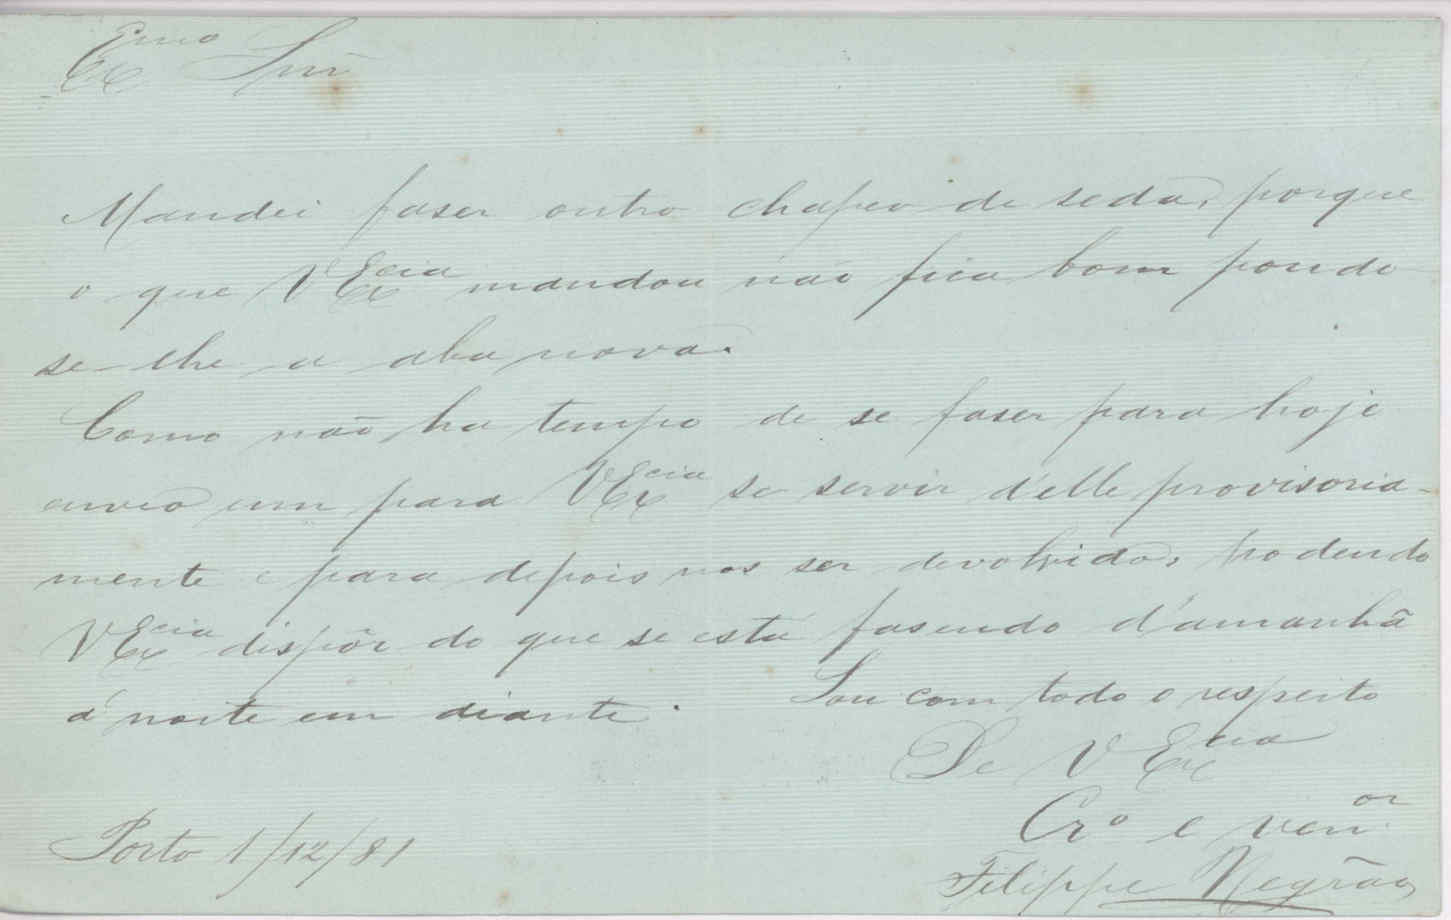 Exmo Snr
Mandei faser outro chapeo de seda, porque
o que VExcia mandou não fica bom pondo
se-lhe a aba nova.
Como não ha tempo de se faser para hoje
envio um para VExcia se servir d'elle provisoria-
mente e para depois nos ser devolvido, podendo
VExcia dispôr do que se está fasendo d'amanhã
á noite em diante.
Sou com todo o respeito
De VExcia
Cro e venor
Porto 1/12/81
Filippe Negrão